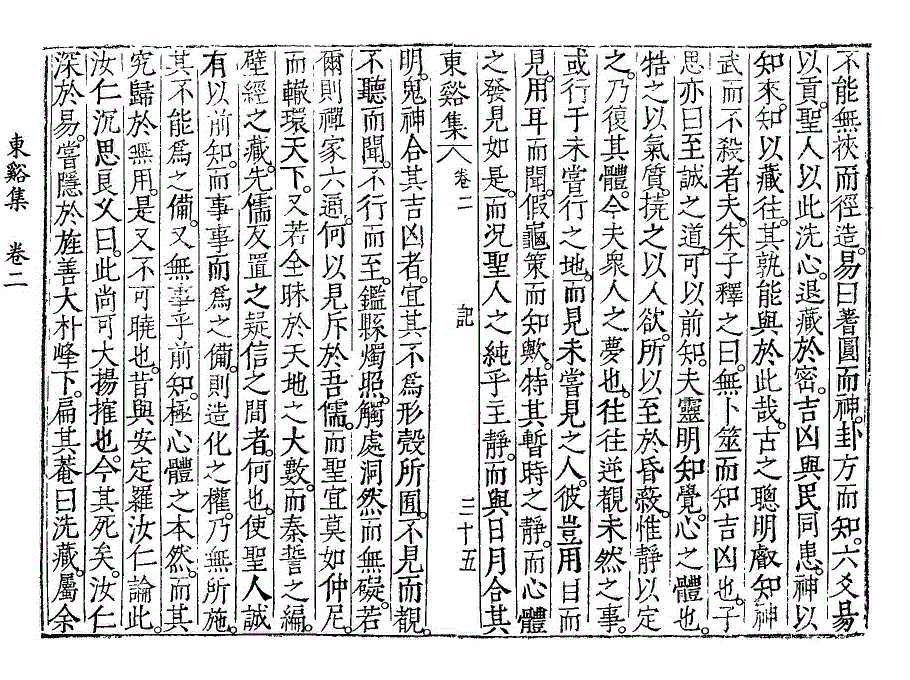 不能無裌而徑造。易曰蓍圓而神。卦方而知。六爻易
以貢。聖人以此洗心。退藏於密。吉凶與民同患。神以
知來。知以藏往。其孰能與於此哉。古之聰明叡知神
武而不殺者夫。朱子釋之曰。無卜筮而知吉凶也。子
思亦曰至誠之道。可以前知。夫靈明知覺。心之體也。
牿之以氣質。撓之以人欲。所以至於昏蔽。惟靜以定
之。乃復其體。今夫衆人之夢也。往往逆覩未然之事。
或行于未嘗行之地。而見未嘗見之人。彼豈用目而
見。用耳而聞。假龜策而知歟。特其暫時之靜。而心體
之發見如是。而况聖人之純乎主靜。而與日月合其
東谿集 卷二 記 三十五
明。鬼神合其吉凶者。宜其不爲形殼所囿。不見而覩。
不聽而聞。不行而至。鑑縣燭照。觸處洞然而無礙。若
爾則禪家六通。何以見斥於吾儒。而聖宜莫如仲尼。
而轍環天下。又若全昧於天地之大數。而秦誓之編。
壁經之藏。先儒友置之疑信之間者。何也。使聖人誠
有以前知。而事事而爲之備。則造化之權。乃無所施。
其不能爲之備。又無事乎前知。極心體之本然。而其
究歸於無用。是又不可曉也。昔與安定羅汝仁論此。
汝仁沉思良久曰。此尚可大揚搉也。今其死矣。汝仁
深於易。嘗隱於旌善大朴峰下。扁其菴曰洗藏。屬余
東谿集 卷二